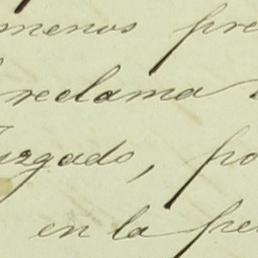 menos pre
reclama
uzgado, po
en la pe